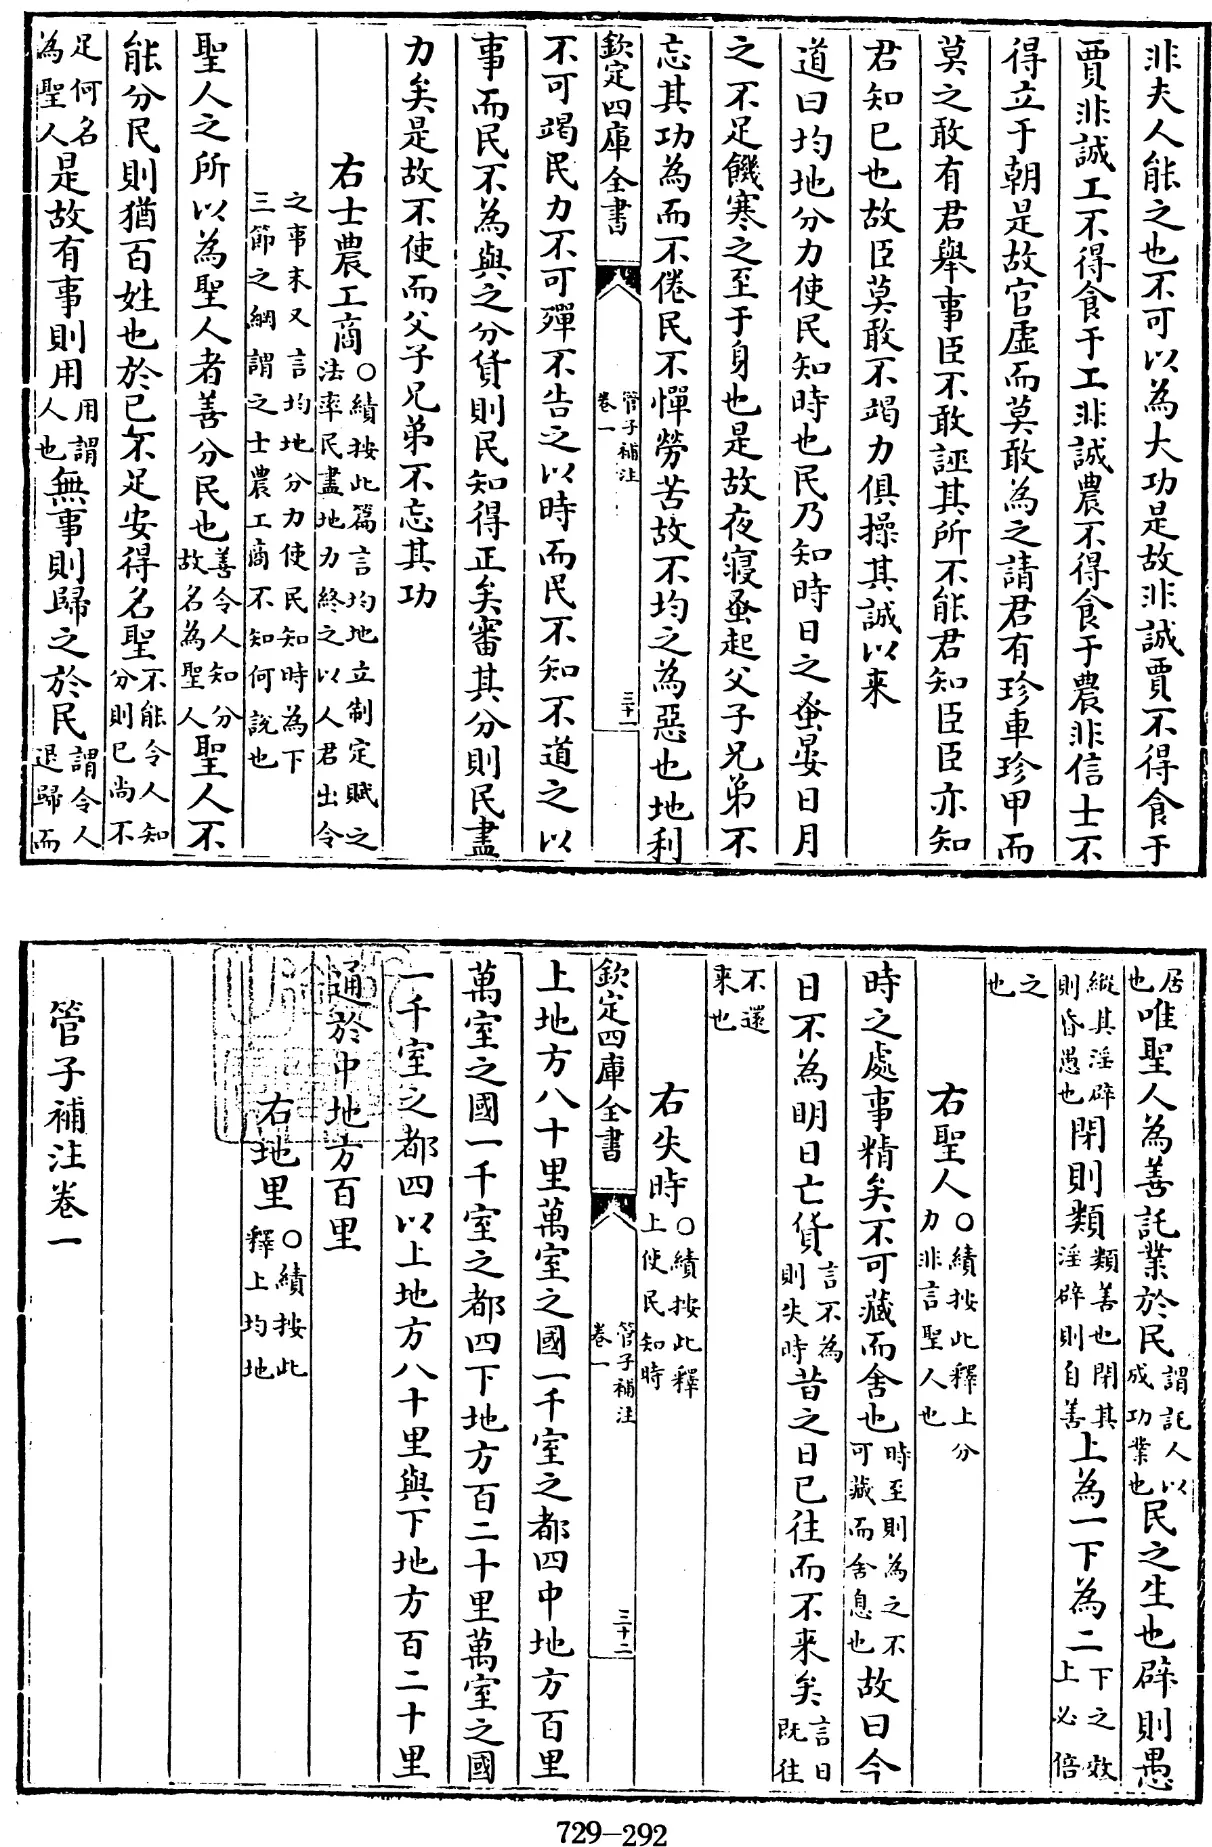 非夫人能之也不可以為大功是故非誠賈不得食于
賈非誠工不得食于工非誠農不得食于農非信士不
得立于朝是故官虛而莫敢為之請君有珍車珍甲而
莫之敢有君舉事臣不敢誣其所不能君知臣臣亦知
君知已也故臣莫敢不竭力俱操其誠以来
道曰均地分力使民知時也民乃知時日之蚤晏日月
之不足饑寒之至于身也是故夜寢蚤起父子兄弟不
忘其功為而不倦民不憚勞苦故不均之為惡也地利
欽定四庫全書
管子補注
卷一
三十一
不可竭民力不可殫不告之以時而民不知不道之以
事而民不為與之分貨則民知得正矣審其分則民盡
力矣是故不使而父子兄弟不忘其功
右士農工商○績按此篇言均地立制定賦之
法率民盡地力終之以人君出令
之事末又言均地分力使民知時為下
三節之綱謂之士農工商不知何説也
聖人之所以為聖人者善分民也善令人知分
故名為聖人聖人不
能分民則猶百姓也於已不足安得名聖不能令人知
分則已尚不
足何名
為聖人是故有事則用用謂
人也無事則歸之於民謂令人
退歸而
居
也唯聖人為善託業於民謂託人以
成功業也民之生也辟則愚
縱其淫辟
則昏愚也閉則類類善也閉其
淫辟則自善上為一下為二下之效
上必倍
之
也
右聖人○績按此釋上分
力非言聖人也
時之處事精矣不可藏而舍也時至則為之不
可藏而舍息也故曰今
日不為明日亡貨言不為
則失時昔之日已往而不来矣言日
既往
不還
来也
右失時○績按此釋
上使民知時
欽定四庫全書
管子補注
卷一
三十二
上地方八十里萬室之國一千室之都四中地方百里
萬室之國一千室之都四下地方百二十里萬室之國
一千室之都四以上地方八十里與下地方百二十里
通於中地方百里
右地里○績按此
釋上均地
管子補注卷一
729-292